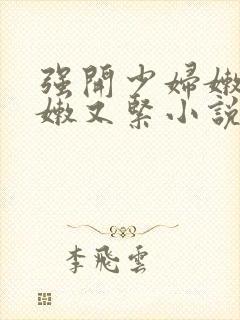 强開少婦嫩
嫩又緊小說
李飛雲